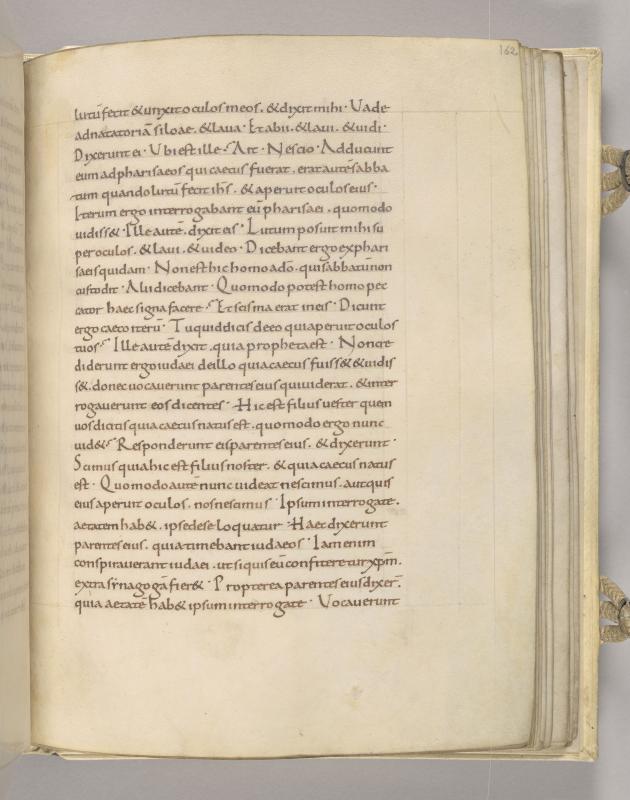 162
lutū fecit & unxit oculos meos. & dixit mihi· Uade
ad natatoriā siloae. & laua· Et abii. & laui. & uidi·
Dixerunt ei· Ubi est ille· Ait· Nescio· Adducunt
eum ad pharisaeos qui caecus fuerat. erat autē sabba
tum quando lutū fecit ihs. & aperuit oculos eius·
Iterum ergo interrogabant eū pharisaei. quomodo
uidiss&· Ille autē. dixit eis· Lutum posuit mihi su
per oculos. & laui. & uideo· Dicebant ergo ex phari
saeis quidam· Non est hic homo a dō. qui sabbatū non
custodit· Alii dicebant· Quomodo potest homo pec
cator haec signa facere· Et scisma erat in eis· Dicunt
ergo caeco iterū· Tu quid dicis de eo qui aperuit oculos
tuos· Ille autē dixit. quia propheta est· Non cre
diderunt ergo iudaei de illo quia caecus fuiss& & uidis
s&. donec uocauerunt parentes eius qui uiderat. & inter
rogauerunt eos dicentes· Hic est filius uester quem
uos dicitis quia caecus natus est. quomodo ergo nunc
uid&· Responderunt eis parentes eius. & dixerunt·
Scimus quia hic est filius noster. & quia caecus natus
est· Quomodo autē nunc uideat nescimus. aut quis
eius aperuit oculos. nos nescimus· Ipsum interrogate.
aetatem hab&. ipse de se loquatur· Haec dixerunt
parentes eius. quia timebant iudaeos· Iam enim
conspirauerant iudaei. ut si quis eū confiteretur xpm̄.
extra synagogā fier&· Propterea parentes eius dixer̄.
quia aetatē hab& ipsum interrogate· Uocauerunt